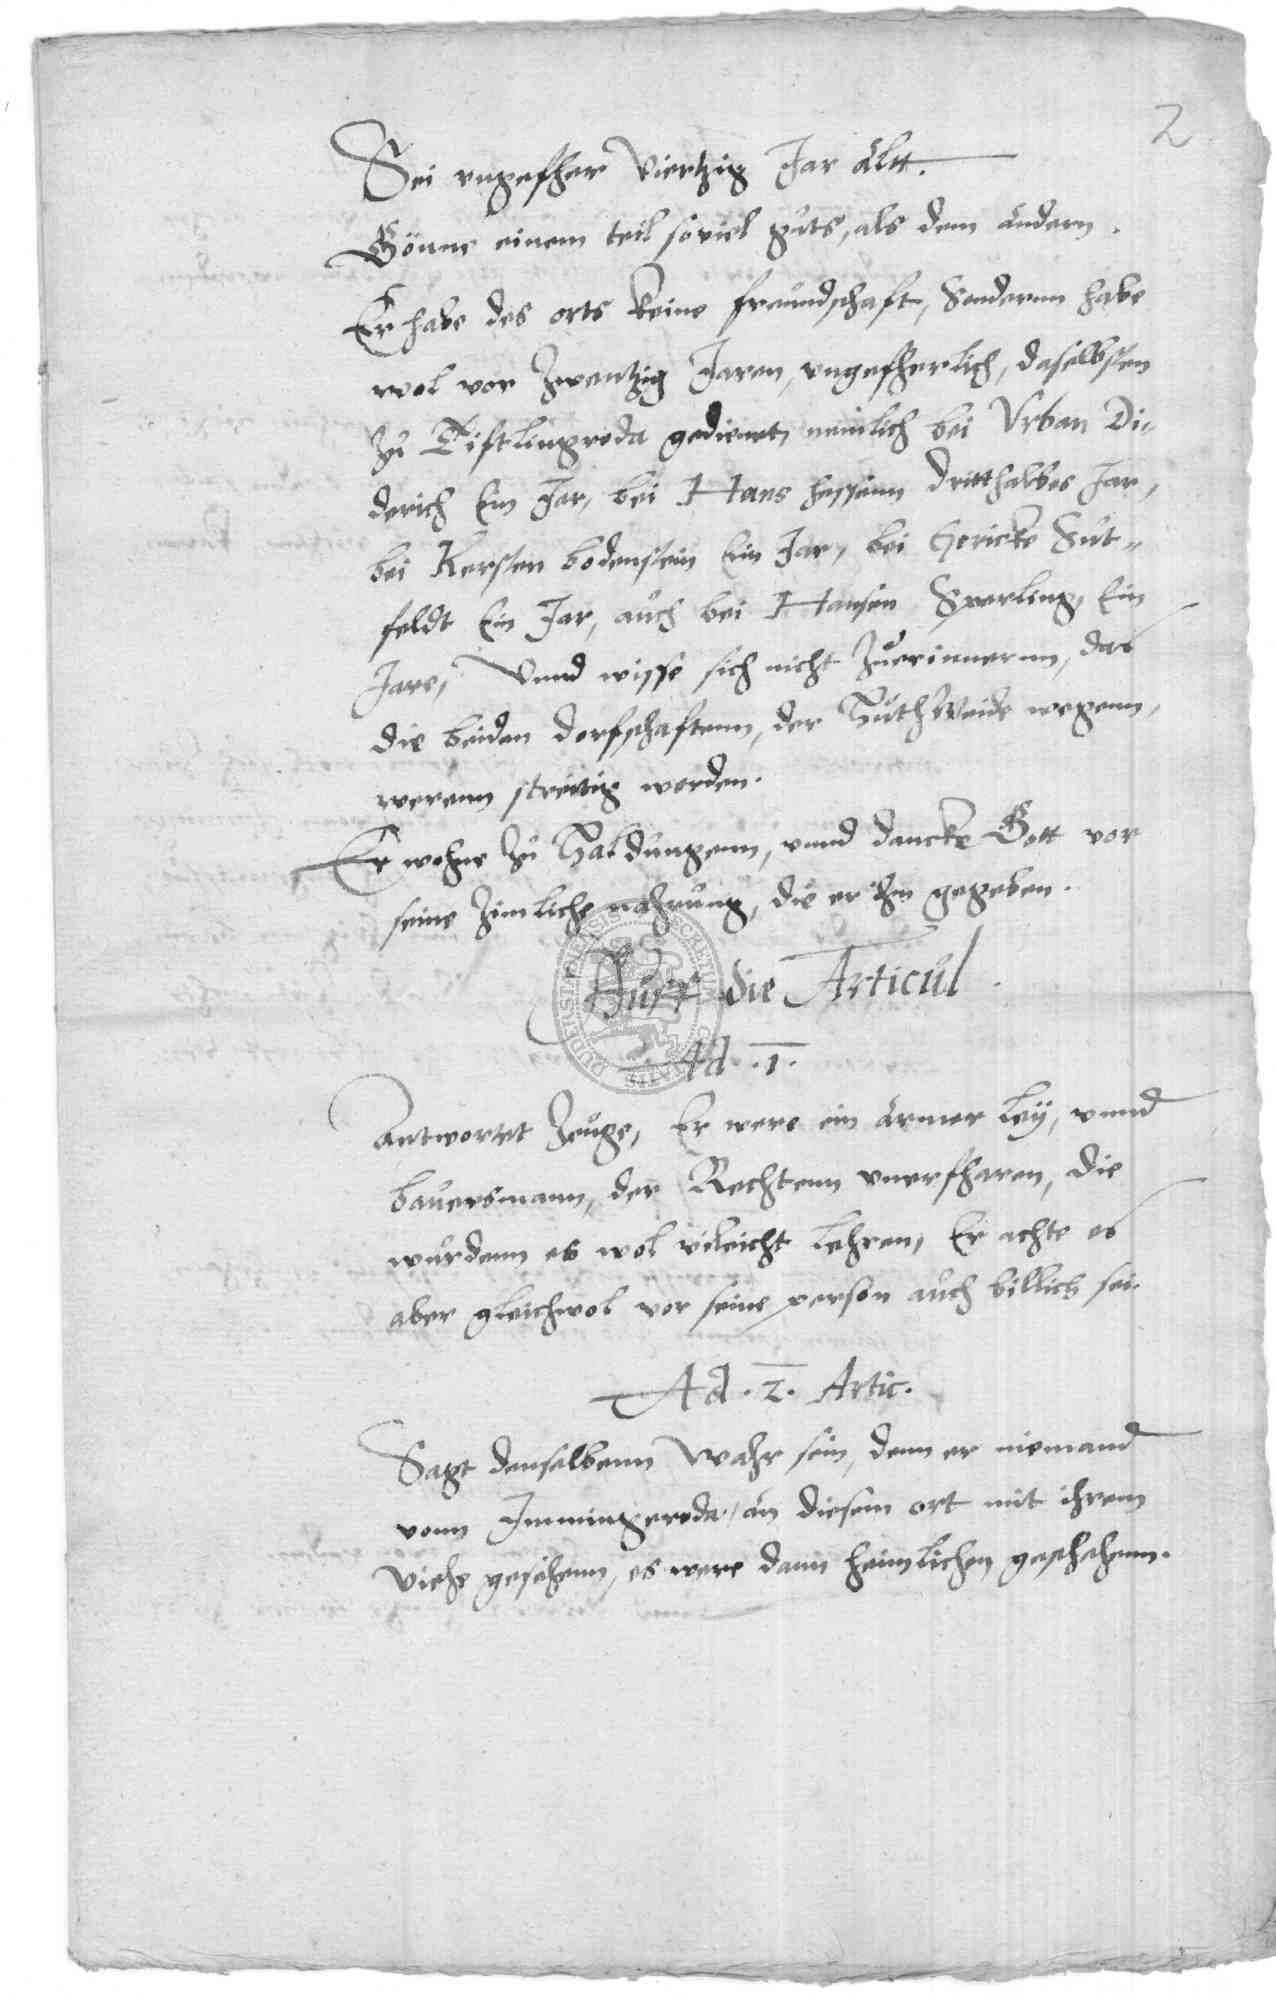 2
Sei vngefher Viertzig Jar altt.
Gönne einem teil soviel guts, als dem andern.
Er habe des orts keine freundschaft, Sondernn habe
wol vor Zwentzig Jaren, vngefherlich, daselbsten
zu Tiftlingroda gedienet, nemlich bei Vrban Di„
derich Ein Jar, bei Hans hessenn dritthalbes Jar,
bei Kersten bodenstein Ein Jar, bei Gericke Sut„
feldt Ein Jar, auch bei Hansen Sperling, Ein
Jare, Vnnd wisse sich nicht zuerinnernn, das
die beiden dorfschaftenn, der HuthWeide wegenn,
werenn streitig worden.
Er wohne zu Haldungenn, vnnd dancke Gott vor
seine zimliche nahrung, die er ihm gegeben.
Auff die Articul
Ad .1.
Antwortet Zeuge, Er were ein armer ley, vnnd
bauersmann, der Rechtenn vnerfharen, die
wurdenn es wol vileicht lehren, Er achte es
aber gleichwol vor seine person auch billich sei.
Ad .2. Artic.
Sagt denselbenn Wahr sein, denn er niemand
vonn Immingeroda, an diesem ort mit ihrem
Viehe gesehenn, es were dann heimlichen geschehenn.